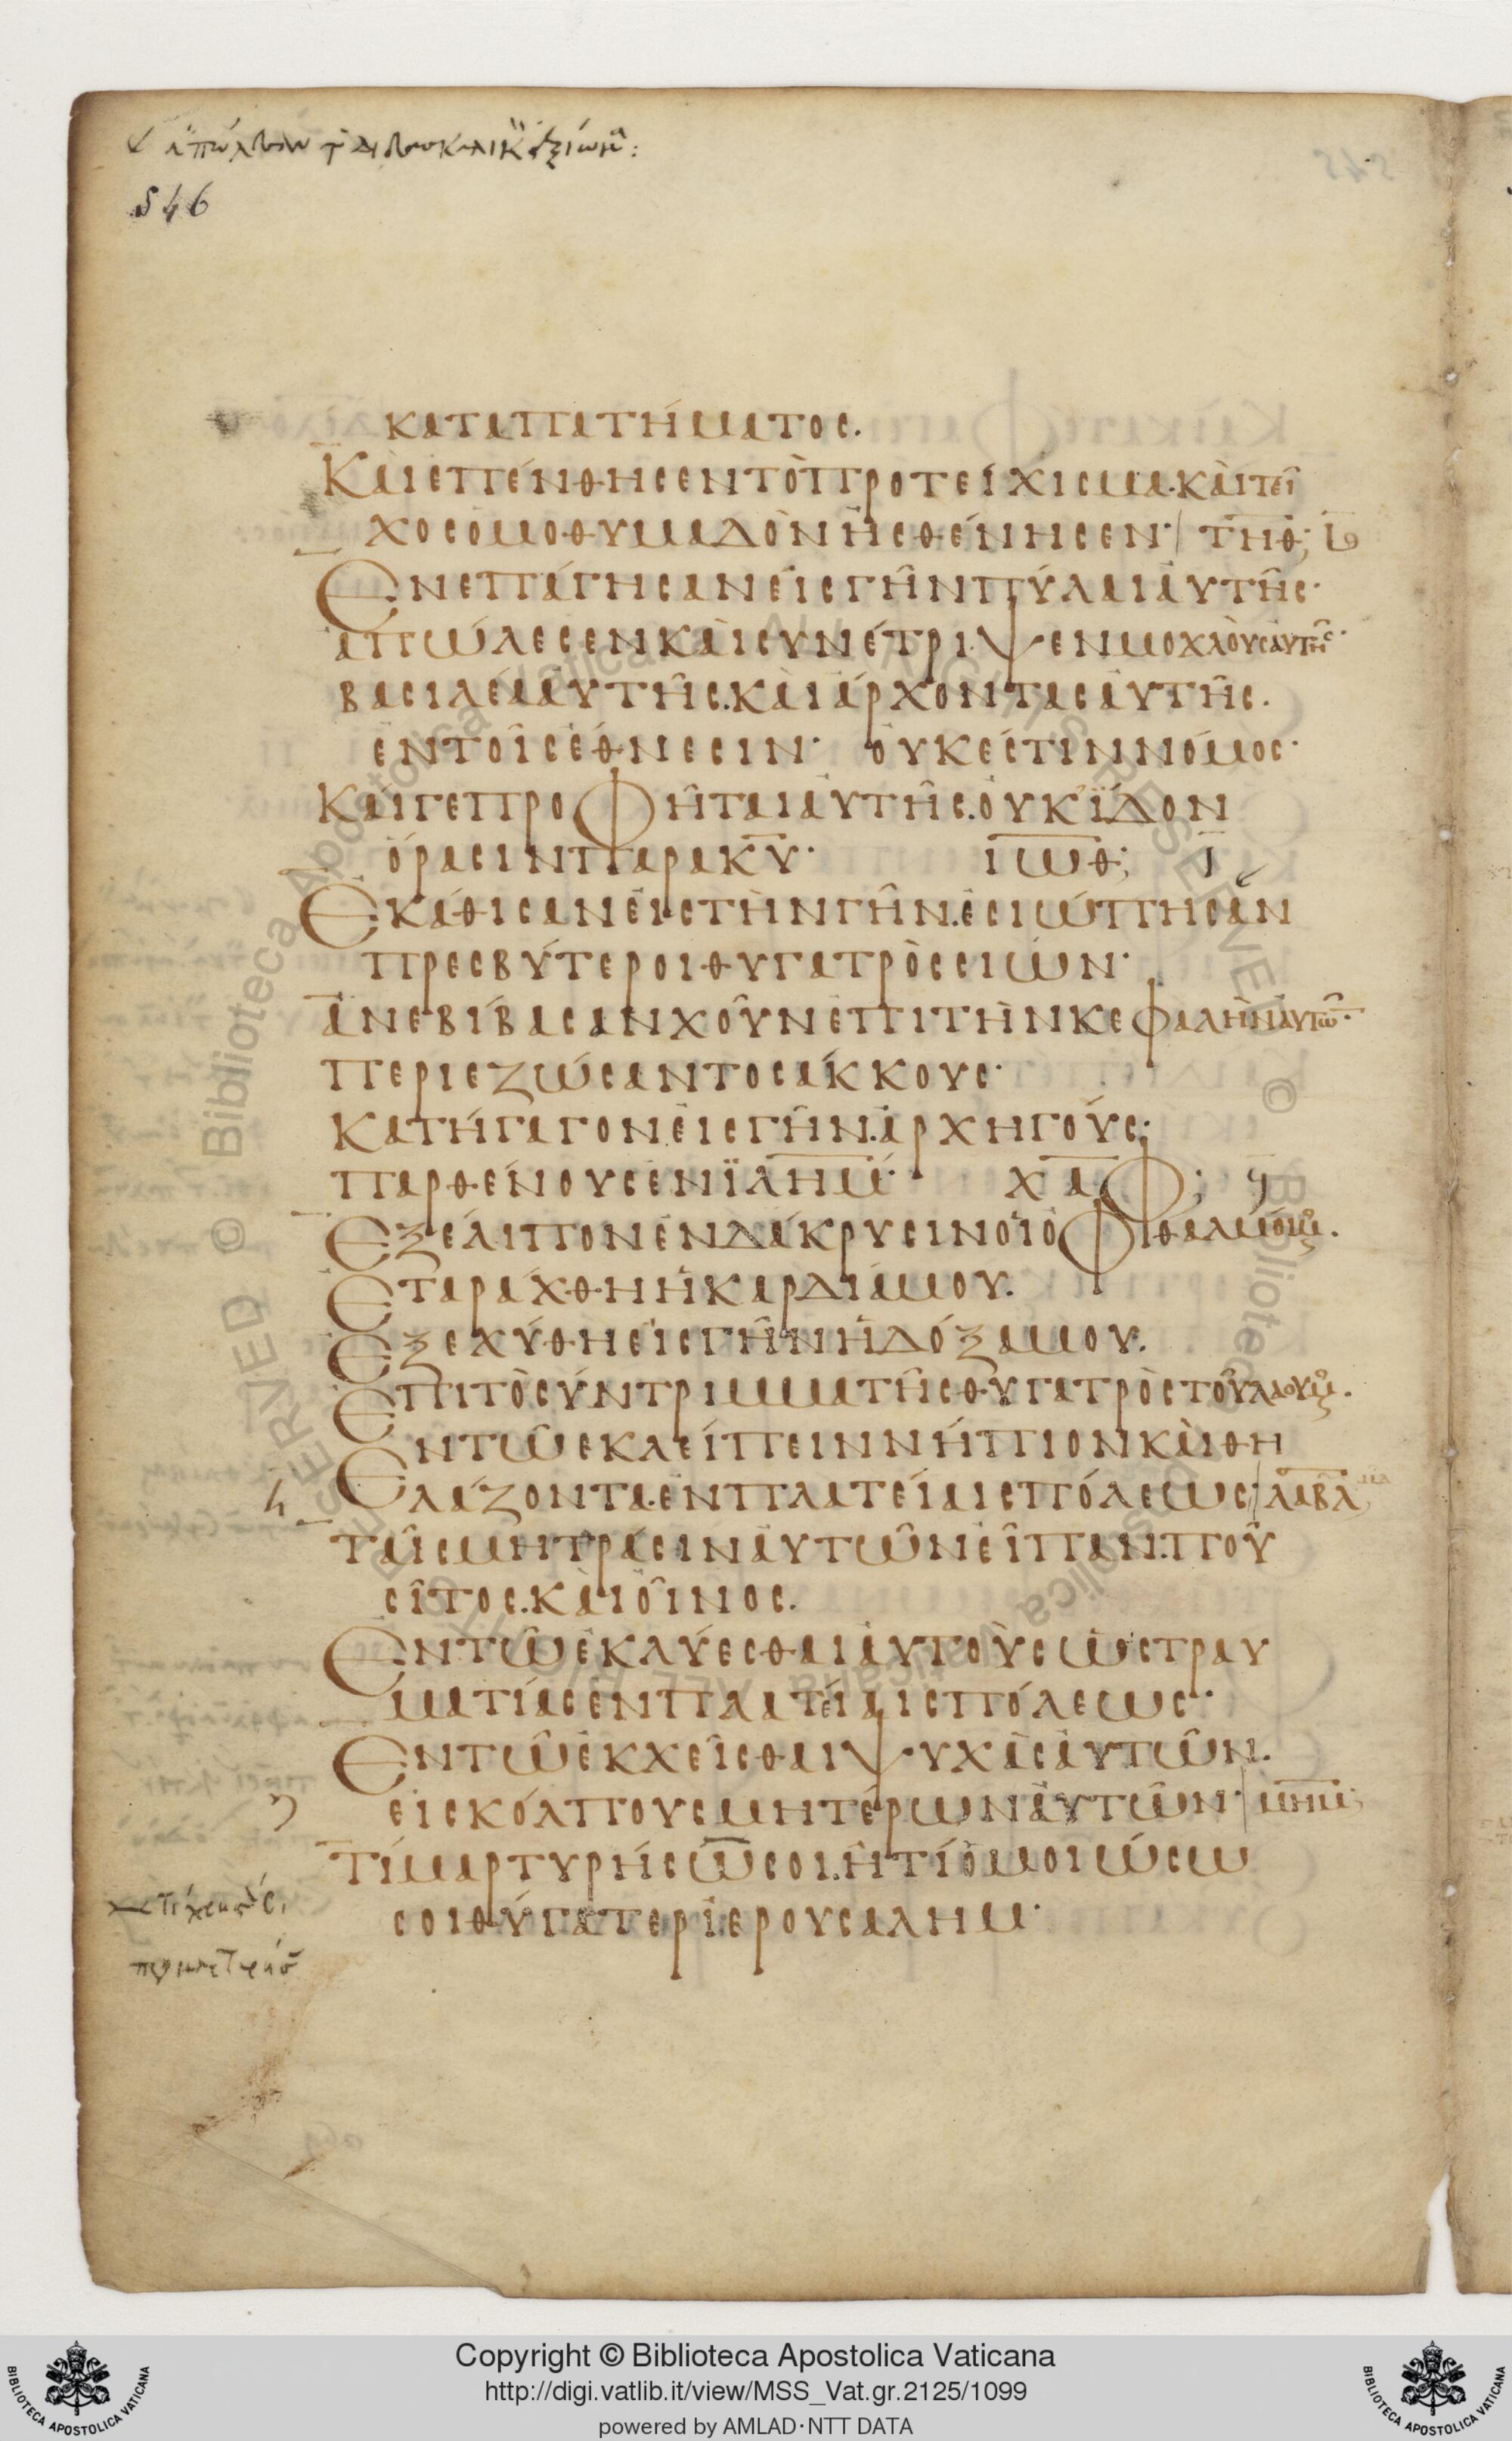 546
ΚΑΤΑΠΑΤΉΜΑΤΟΣ.
ΚΑῚΕΠΈΝΘΗΣΕΝΤῸΠΡΟΤΕΊΧΙΣΜΑ·ΚΑῚΤΕΙ͂
ΧΟΣΟΜΟΘΥΜΑΔῸΝἨΣΘΈΝΗΣΕΝ· ΤΗΘ;
ΕΝΕΠΆΓΗΣΑΝΕἸΣΓΗ͂ΝΠΎΛΑΙΑΥ̓ΤΗ͂Σ·
ΑΠΏΛΕΣΕΝΚΑῚΣΥΝΈΤΡΙΨΕΝΜΟΧΛΟῪΣΑΥ̓ΤΗ͂Σ·
ΒΑΣΙΛΈΑΑΥ̓ΤΗ͂Σ.ΚΑῚἌΡΧΟΝΤΑΣΑΥ̓ΤΗ͂Σ.
ἘΝΤΟΙ͂ΣἜΘΝΕΣΙΝ· ΟΥ̓ΚΈΣΤΙΝΝΌΜΟΣ·
ΚΑΊΓΕΠΡΟΦΗ͂ΤΑΙΑΥ̓ΤΗ͂Σ.ΟΥ̓ΚΪ́ΔΟΝ
ὍΡΑΣΙΝΠΑΡΑΚ͞Υ· ΙΩΘ;
ΕΚΆΘΙΣΑΝΕἸΣΤῊΝΓΗ͂Ν.ἘΣΙΏΠΗΣΑΝ
ΠΡΕΣΒΎΤΕΡΟΙΘΥΓΑΤΡῸΣΣΙΏΝ·
ἈΝΕΒΊΒΑΣΑΝΧΟΥ͂ΝἘΠΙΤῊΝΚΕΦΑΛῊΝΑΥ̓ΤΩ͂·
ΠΕΡΙΕΖΏΣΑΝΤΟΣΆΚΚΟΥΣ·
ΚΑΤΉΓΑΓΟΝΕἸΣΓΗ͂Ν.ἈΡΧΗΓΟΎΣ·
ΠΑΡΘΈΝΟΥΣἘΝΪΛΗΜ· ΧΑΦ;
ΕΞΈΛΙΠΟΝἘΝΔΆΚΡΥΣΙΝΟἹὈΦΘΑΛΜΌΙΜΟΥ.
ΕΤΑΡΆΧΘΗἩΚΑΡΔΊΑΜΟΥ.
ΕΞΕΧΎΘΗΕἸΣΓΗ͂ΝἩΔΌΞΑΜΟΥ.
ΕΠΙΤῸΣΎΝΤΡΙΜΜΑΤΗ͂ΣΘΥΓΑΤΡῸΣΤΟΥ͂ΛΑΟΥΜΟΥ.
ΕΝΤΩ͂ΕΚΛΕΊΠΕΙΝΝΉΠΙΟΝΚΑῚΘΗ
ΕΛΆΖΟΝΤΑ.ἘΝΠΛΑΤΕΊΑΙΣΠΌΛΕΩΣ· ΛΑΒΛ
ΤΑΙ͂ΣΜΗΤΡΆΣΙΝΑΥ̓ΤΩ͂ΝΕἾΠΑΝ.ΠΟΥ͂
ΣΙ͂ΤΟΣ.ΚΑῚΟἾΝΟΣ.
ΕΝΤΩ͂ἘΚΛΎΕΣΘΑΙΑΥ̓ΤΟῪΣὩΣΤΡΑΥ
ΜΑΤΊΑΣἘΝΠΛΑΤΕΊΑΙΣΠΌΛΕΩΣ·
ΕΝΤΩ͂ἘΚΧΕΙ͂ΣΘΑΙΨΥΧᾺΣΑΥ̓ΤΩ͂Ν.
ΕΙΣΚΌΛΠΟΥΣΜΗΤΈΡΩΝΑΥ̓ΤΩ͂Ν· ΜΗΜ;
ΤΊΜΑΡΤΥΡΉΣΩΣΟΙ.Ἢ́ΤΊὉΜΟΙΏΣΩ
ΣΟΙΘΎΓΑΤΕΡἹΕΡΟΥΣΑΛΗΜ·
Copyright © Biblioteca Apostolica Vaticana
http://digi.vatlib.it/view/MSS_Vat.gr.2125/1099
powered by AMLAD·NTT DATA
BIBLIOTECA APOSTOLICA VATICANA
BIBLIOTECA APOSTOLICA VATICANA